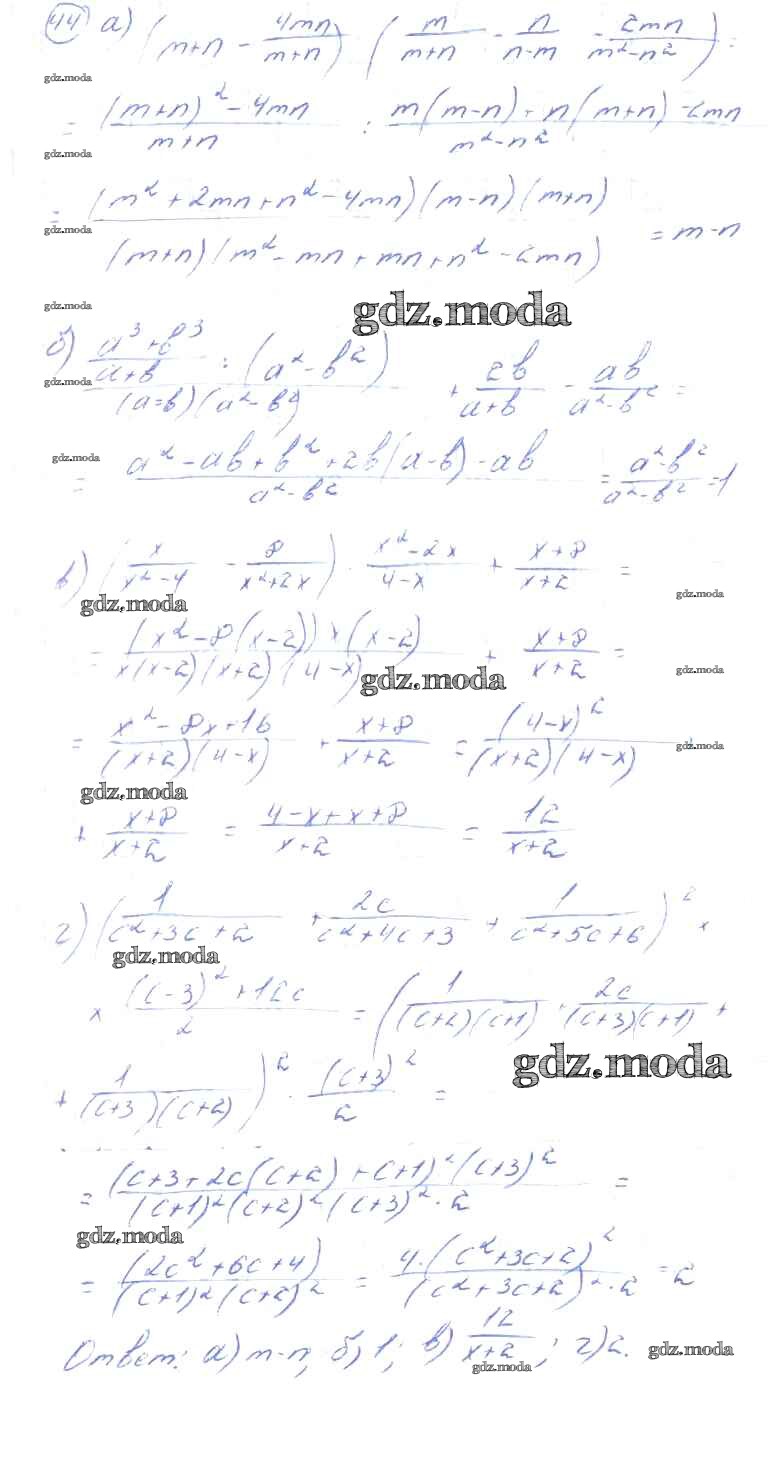 44 а) (m+n - 4mn/(m+n)) : (m/(m+n) - n/(n-m) - 2mn/(m²-n²)) =
gdz.moda
= ((m+n)² - 4mn)/(m+n) : (m(m-n) + n(m+n) - 2mn)/(m²-n²)
gdz.moda
= (m² + 2mn + n² - 4mn)(m-n)(m+n) / (m+n)(m² - mn + mn + n² - 2mn) = m-n
gdz.moda
gdz.moda
gdz.moda
б) (a³+b³)/(a+b) : (a²-b²) / (a+b)(a²-b²) + 2b/(a+b) - ab/(a²-b²) =
gdz.moda
gdz.moda
= (a² - ab + b² + 2b(a-b) - ab)/(a²-b²) = (a²-b²)/(a²-b²) = 1
в) (x/(x²-4) - 8/(x²+2x)) · (x²-2x)/(4-x) + (x+8)/(x+2) =
gdz.moda
gdz.moda
= (x²-8(x-2)) x (x-2) / x(x-2)(x+2)(4-x) + (x+8)/(x+2) =
gdz.moda
gdz.moda
= (x²-8x+16)/((x+2)(4-x)) + (x+8)/(x+2) = (4-x)²/((x+2)(4-x))
gdz.moda
gdz.moda
+ (x+8)/(x+2) = (4-x+x+8)/(x+2) = 12/(x+2)
г) (1/(c²+3c+2) + 2c/(c²+4c+3) + 1/(c²+5c+6))² ×
gdz.moda
× ((c-3)²+12c)/2 = (1/((c+2)(c+1)) + 2c/((c+3)(c+1)) +
gdz.moda
+ 1/((c+3)(c+2)))² · (c+3)²/2 =
= (c+3+2c(c+2)+c+1)² (c+3)² / (c+1)²(c+2)²(c+3)² · 2 =
gdz.moda
= (2c²+6c+4)/((c+1)²(c+2)²) = 4·(c²+3c+2)²/((c²+3c+2)²·2) = 2
Ответ: а) m-n; б) 1; в) 12/(x+2); г) 2.
gdz.moda
gdz.moda